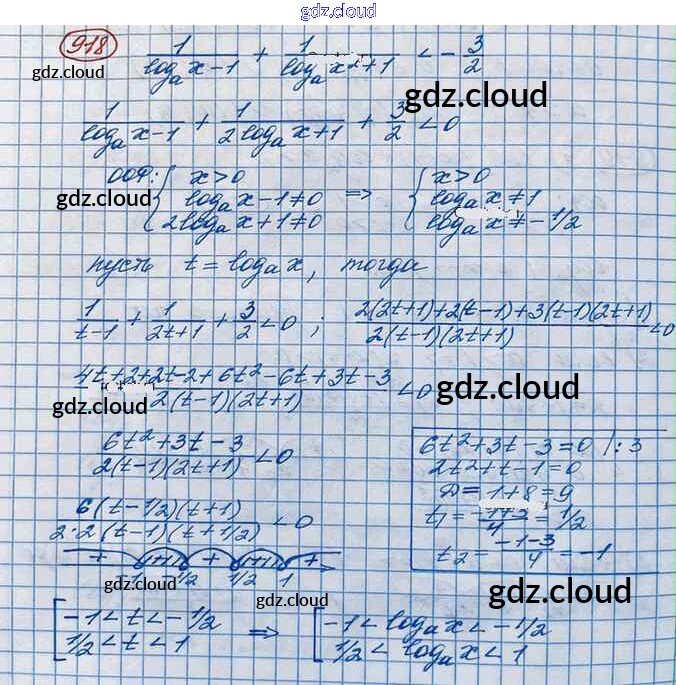 gdz.cloud
918
1/(logₐ x-1) + 1/(logₐ x²+1) < -3/2
gdz.cloud
gdz.cloud
1/(logₐ x-1) + 1/(2logₐ x+1) + 3/2 < 0
ООФ: { x>0 ; logₐ x-1≠0 ; 2logₐ x+1≠0 => { x>0 ; logₐ x≠1 ; logₐ x≠-1/2
gdz.cloud
gdz.cloud
пусть t = logₐ x, тогда
1/(t-1) + 1/(2t+1) + 3/2 < 0 ; (2(2t+1)+2(t-1)+3(t-1)(2t+1))/(2(t-1)(2t+1)) < 0
(4t+2+2t-2+6t²-6t+3t-3)/(2(t-1)(2t+1)) < 0
gdz.cloud
gdz.cloud
(6t²+3t-3)/(2(t-1)(2t+1)) < 0
6t²+3t-3=0 /:3
2t²+t-1=0
D=1+8=9
t₁ = (-1+3)/4 = 1/2
t₂ = (-1-3)/4 = -1
6(t-1/2)(t+1)/(2·2(t-1)(t+1/2)) < 0
gdz.cloud
gdz.cloud
+ + +
-1 -1/2 1/2 1
gdz.cloud
gdz.cloud
gdz.cloud
[ -1<t<-1/2 ; 1/2<t<1 => [ -1<logₐ x<-1/2 ; 1/2<logₐ x<1